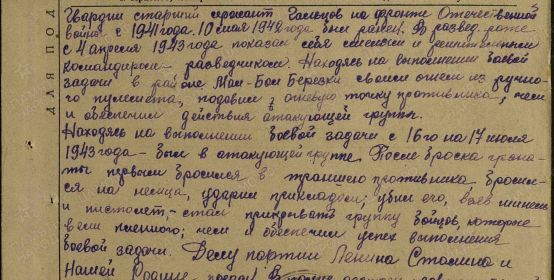 Гвардии старший сержант на фронте Отечественной
войны с 1941 года. 10 мая 1942 года был ранен. В развед. роте
с 4 апреля 1943 года показал себя смелым и решительным
командиром разведчиком. Находясь на выполнении боевой
задачи в районе Березки своим огнем из ручно-
го пулемета, подавил 2 огневую точку противника, чем
и обеспечил действия атакующей группы.
Находясь на выполнении боевой задачи с 16го на 17 июля
1943 года - был в атакующей группе. После броска грана-
ты первым бросился в траншею противника бросив-
ся на немца, ударил прикладом, убил его, взяв
и пистолет, - стал прикрывать группу бойцов, которые
вели пленного; чем и обеспечил успех выполнения
боевой задачи. Делу партии Ленина Сталина и
Нашей Родине - предан!
ДЛЯ ПОД